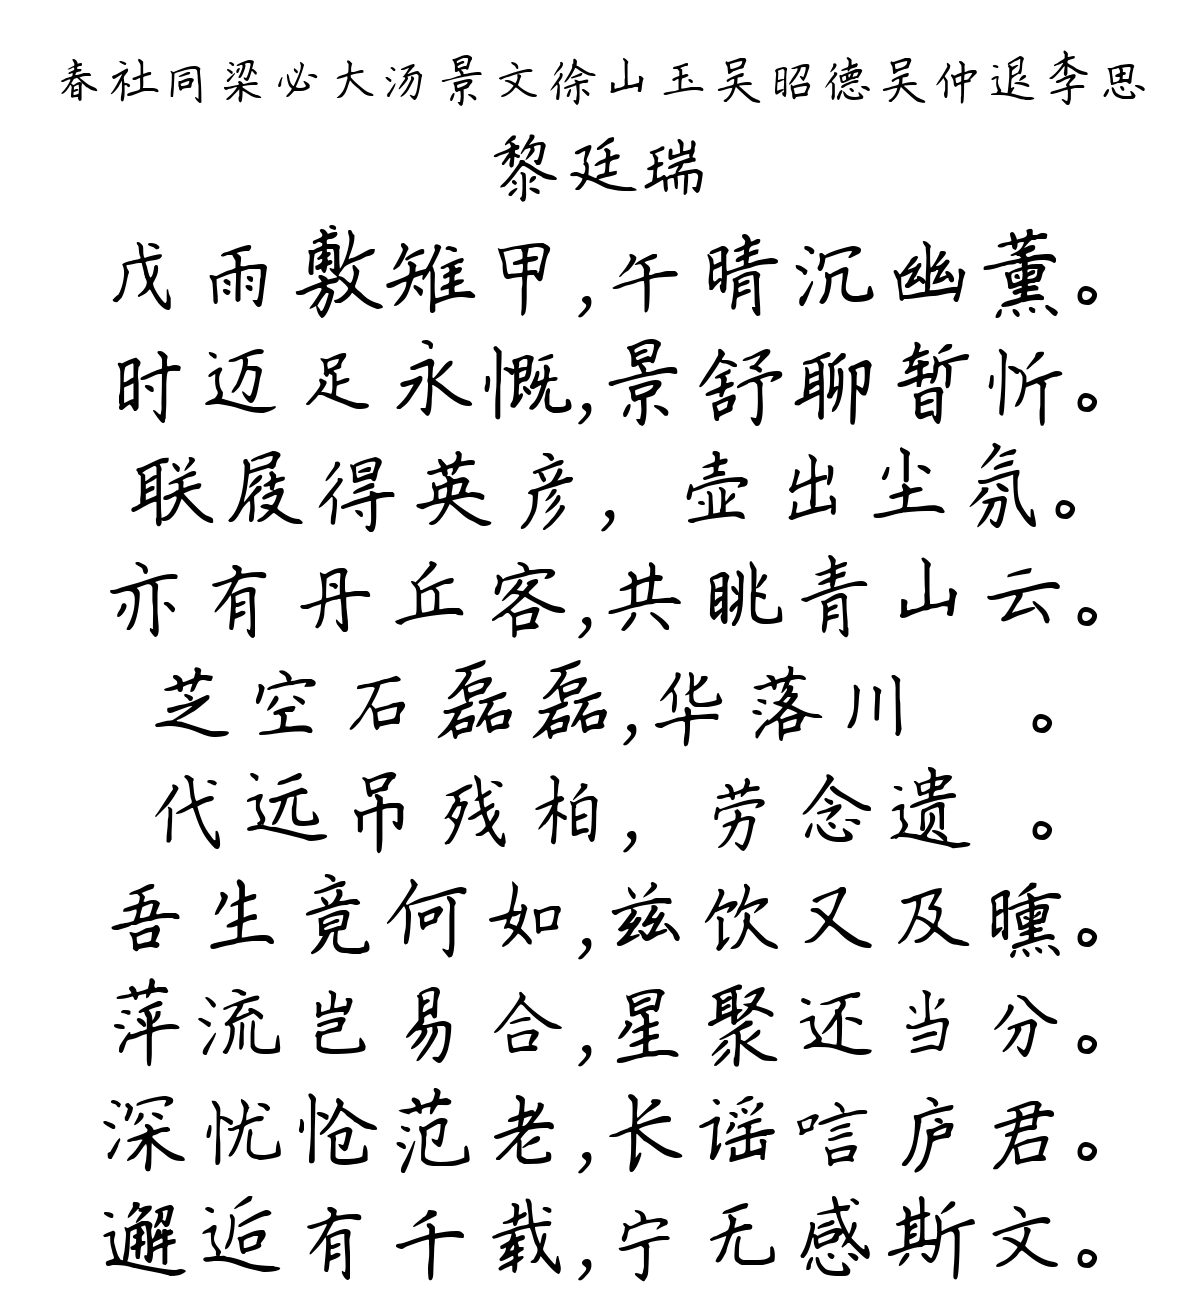 春社同梁必大汤景文徐山玉吴昭德吴仲退李思
黎廷瑞
戊雨敷雉甲,午晴沉幽薰。
时迈足永慨,景舒聊暂忻。
联屐得英彦，壶出尘氛。
亦有丹丘客,共眺青山云。
芝空石磊磊,华落川 。
代远吊残柏，劳念遗 。
吾生竟何如,兹饮又及曛。
萍流岂易合,星聚还当分。
深忧怆范老,长谣唁庐君。
邂逅有千载,宁无感斯文。